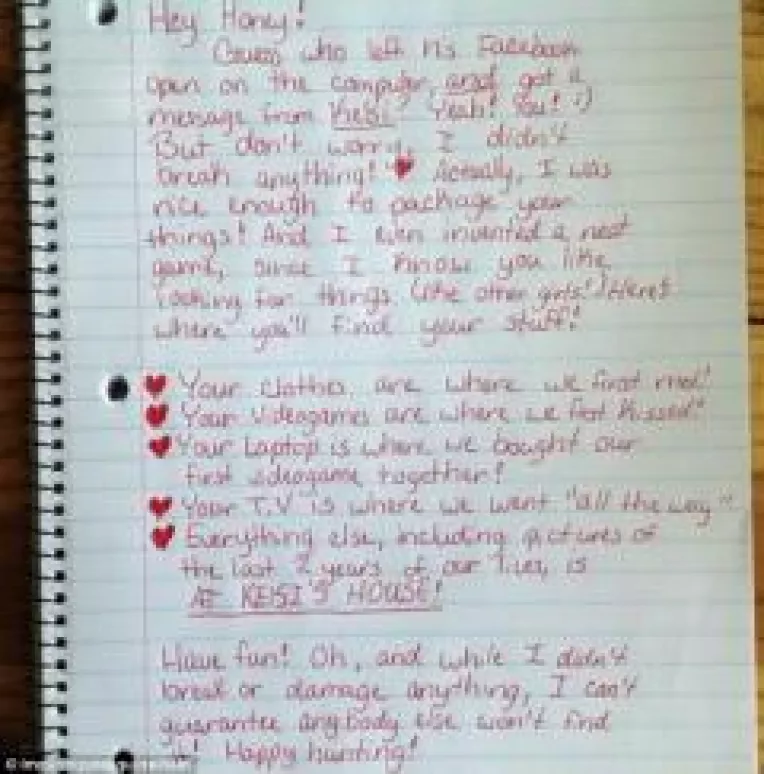 Hey Honey!
Guess who left his Facebook
open on the computer, and got a
message from Keisi? Yeah! You! :)
But don't worry, I didn't
break anything! ♥ Actually, I was
nice enough to package your
things! And I even invented a neat
game, since I know you like
looking for things (like other girls!) Here's
where you'll find your stuff!
♥ Your clothes are where we first met!
♥ Your videogames are where we first kissed!
♥ Your Laptop is where we bought our
first videogame together!
♥ Your T.V is where we went "all the way"
♥ Everything else, including pictures of
the last 2 years of our lives, is
AT KEISI'S HOUSE!
Have fun! Oh, and while I didn't
break or damage anything, I can't
guarantee anybody else won't find
it! Happy hunting!